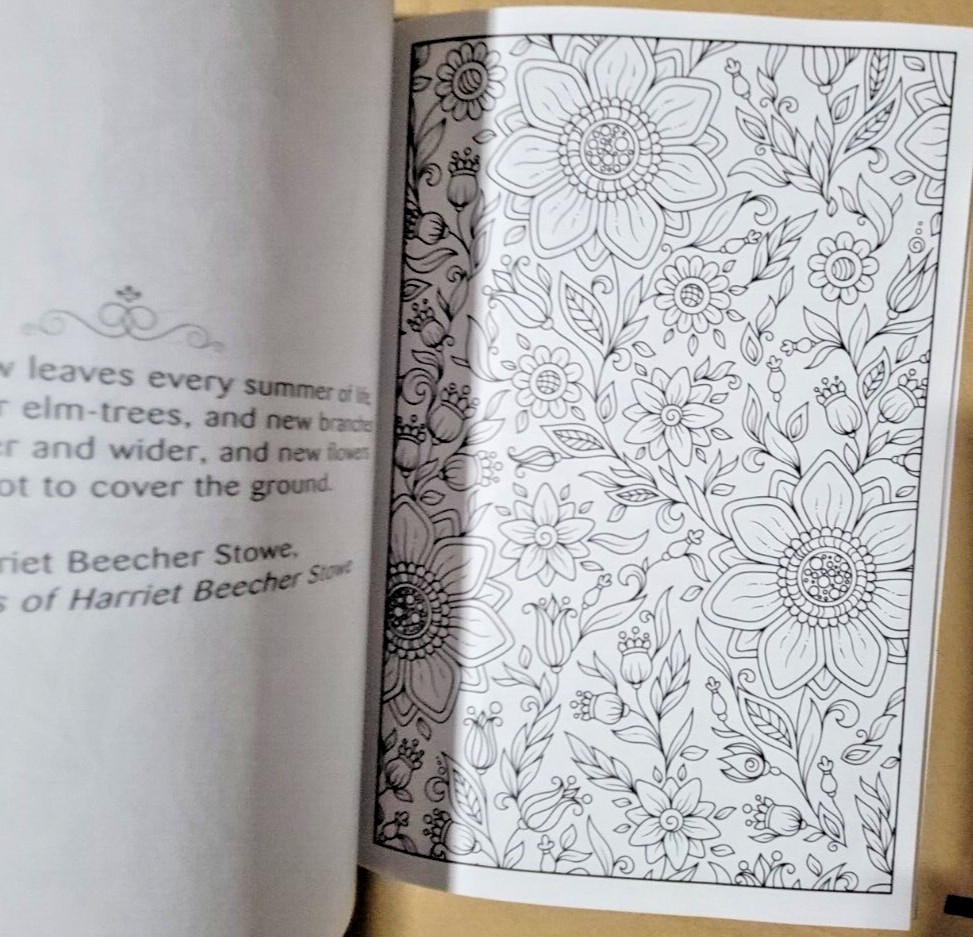 leaves every summer of life,
elm-trees, and new branches
and wider, and new flowers
to cover the ground.
Beecher Stowe,
of Harriet Beecher Stowe